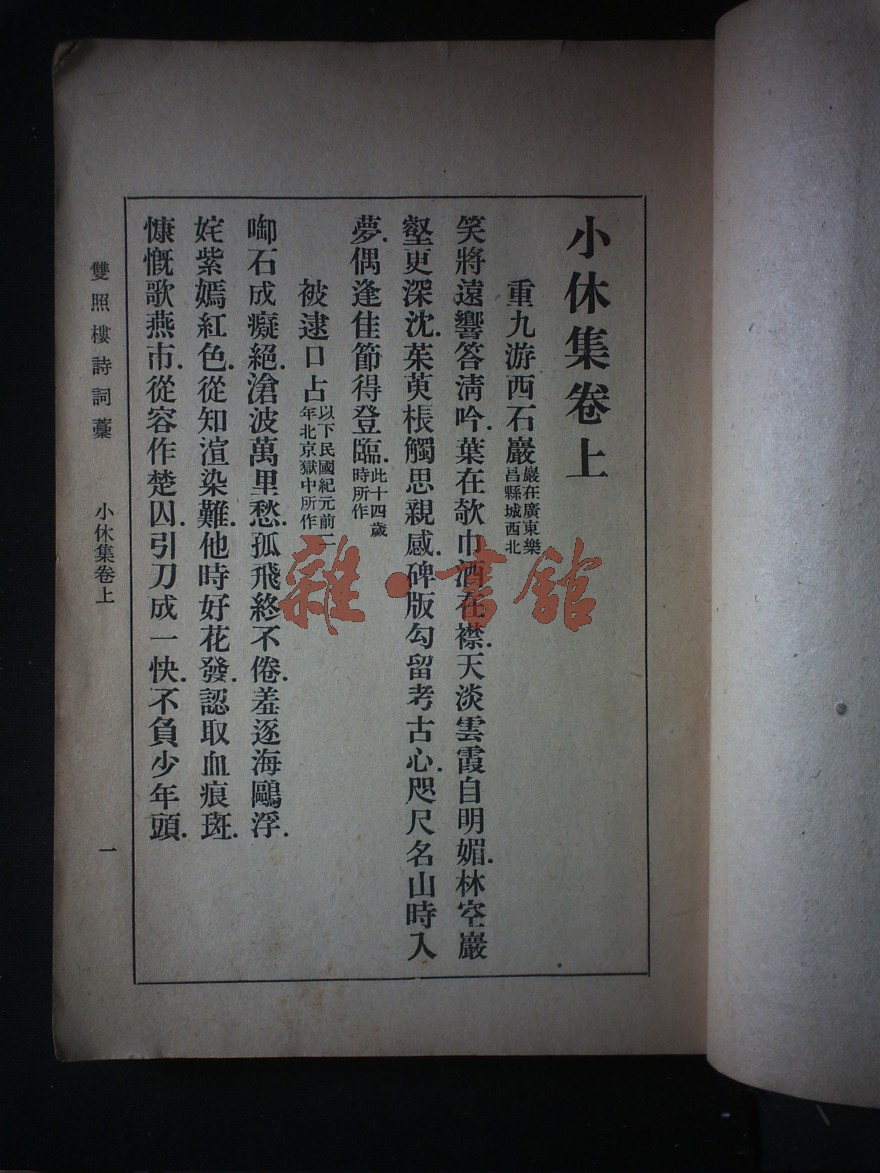 小休集卷上
重九游西石巖 巖在廣東樂昌縣城西北
笑將遠響答淸吟.葉在欹巾酒在襟.天淡雲霞自明媚.林空巖
壑更深沈.茱萸棖觸思親感.碑版勾留考古心.咫尺名山時入
夢.偶逢佳節得登臨.此十四歲時所作
被逮口占 以下民國紀元前二年北京獄中所作
啣石成癡絕.滄波萬里愁.孤飛終不倦.羞逐海鷗浮.
姹紫嫣紅色.從知渲染難.他時好花發.認取血痕斑.
慷慨歌燕市.從容作楚囚.引刀成一快.不負少年頭.
雙照樓詩詞藳 小休集卷上 一
雜·書館